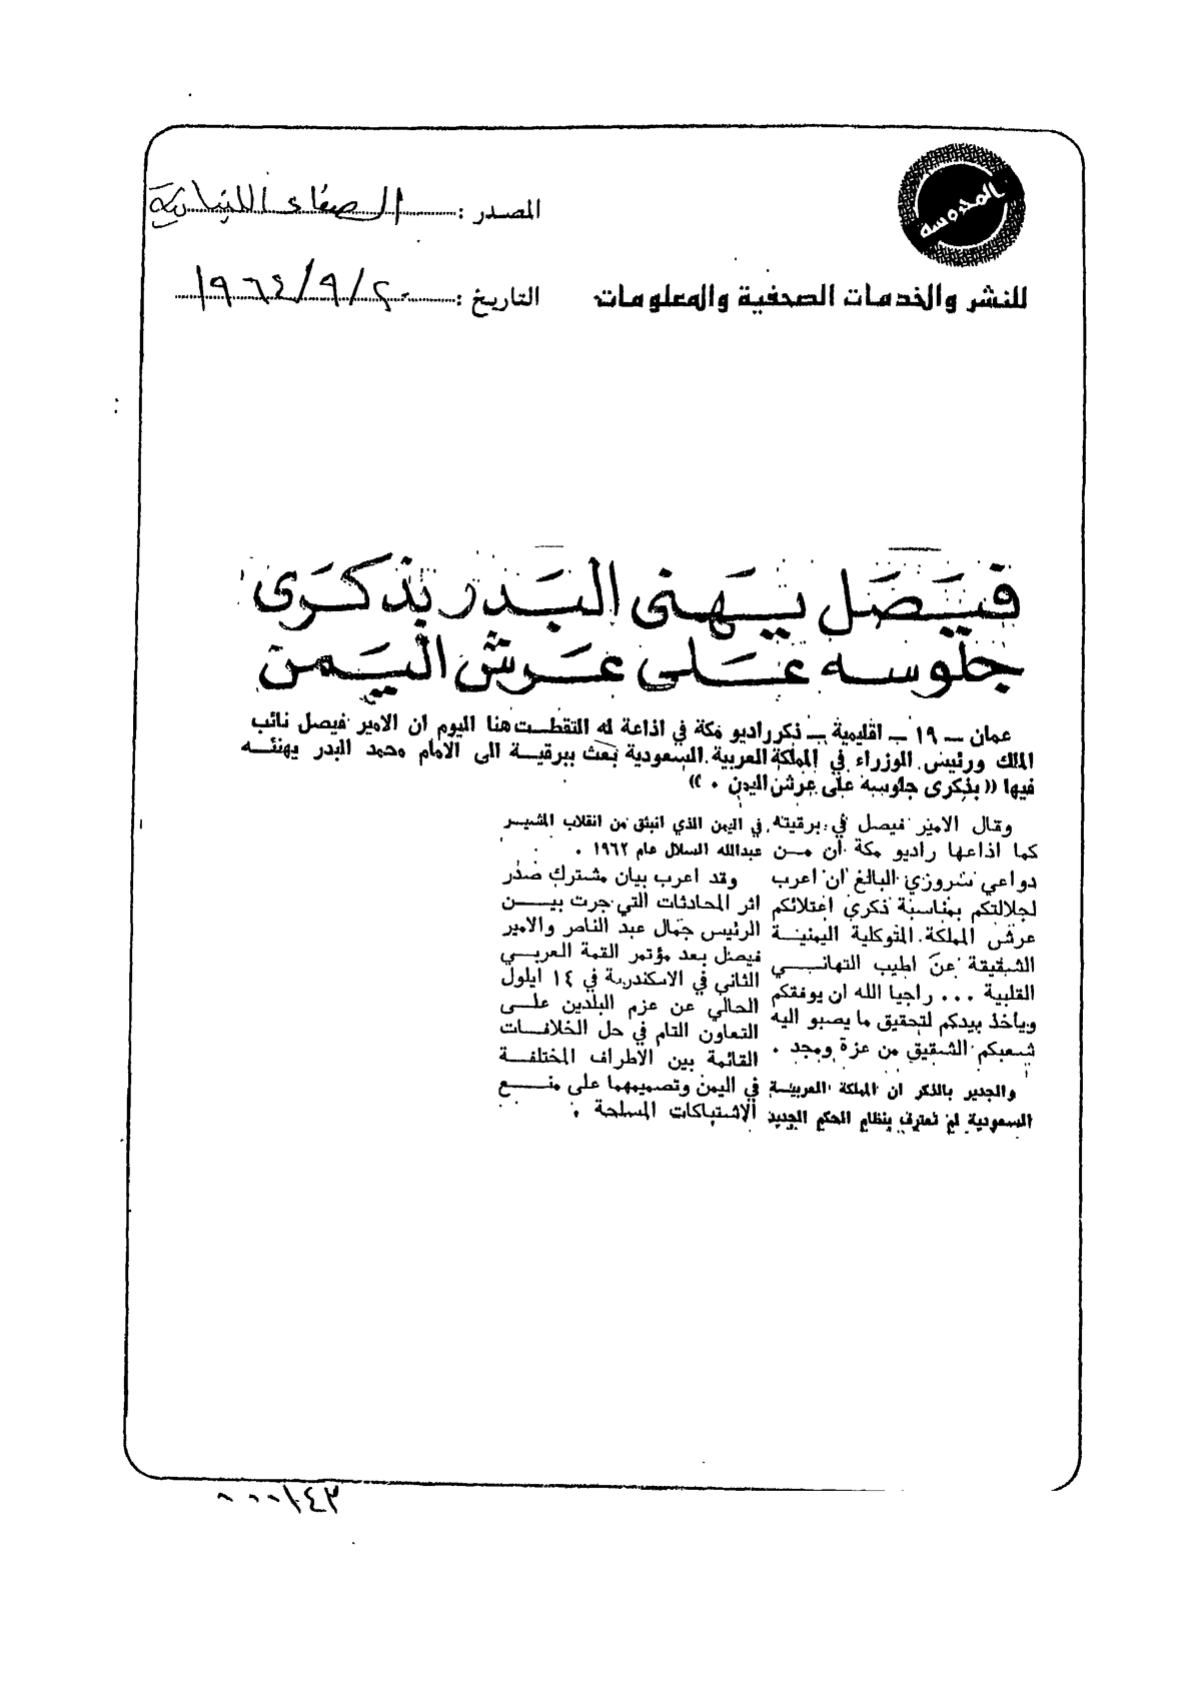 المحروسه
للنشر والخدمات الصحفية والمعلومات
المصدر : الصفاء اللبنانية
التاريخ : ٢٠/٩/١٩٦٤
فيصل يهنى البدر بذكرى
جلوسه على عرش اليمن
عمان – ١٩ – اقليمية – ذكر راديو مكة في اذاعة له التقطت هنا اليوم ان الامير فيصل نائب
الملك ورئيس الوزراء في المملكة العربية السعودية بعث ببرقية الى الامام محمد البدر يهنئه
فيها «بذكرى جلوسه على عرش اليمن .»
وقال الامير فيصل في برقيته
كما اذاعها راديو مكة ان من
دواعي سروري البالغ ان اعرب
لجلالتكم بمناسبة ذكرى اعتلائكم
عرش المملكة المتوكلية اليمنية
الشقيقة عن اطيب التهاني
القلبية ... راجيا الله ان يوفقكم
ويأخذ بيدكم لتحقيق ما يصبو اليه
شعبكم الشقيق من عزة ومجد .
والجدير بالذكر ان المملكة العربية
السعودية لم تعترف بنظام الحكم الجديد
في اليمن الذي انبثق من انقلاب المشير
عبدالله السلال عام ١٩٦٢ .
وقد اعرب بيان مشترك صدر
اثر المحادثات التي جرت بين
الرئيس جمال عبد الناصر والامير
فيصل بعد مؤتمر القمة العربي
الثاني في الاسكندرية في ١٤ ايلول
الحالي عن عزم البلدين على
التعاون التام في حل الخلافات
القائمة بين الاطراف المختلفة
في اليمن وتصميمهما على منع
الاشتباكات المسلحة .